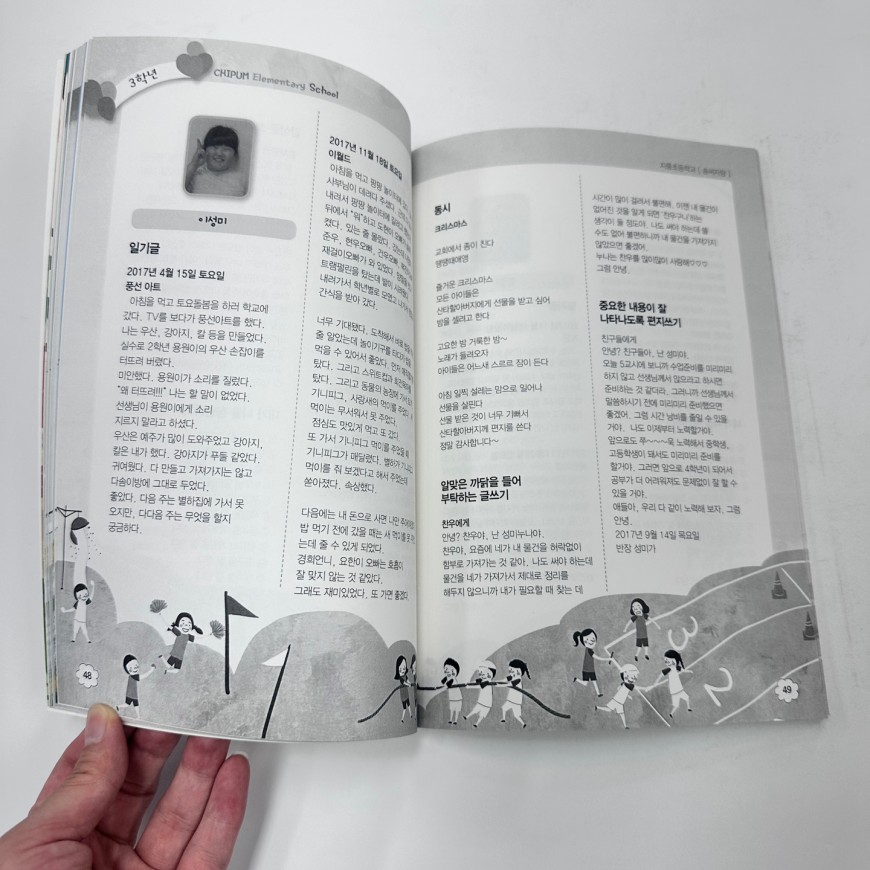 3학년
CHIPUM Elementary School
이성미
일기글
2017년 4월 15일 토요일
풍선 아트
아침을 먹고 토요돌봄을 하러 학교에
갔다. TV를 보다가 풍선아트를 했다.
나는 우산, 강아지, 칼 등을 만들었다.
실수로 2학년 용원이의 우산 손잡이를
터뜨려 버렸다.
미안했다. 용원이가 소리를 질렀다.
"왜 터뜨려!!!" 나는 할 말이 없었다.
선생님이 용원이에게 소리
지르지 말라고 하셨다.
우산은 예주가 많이 도와주었고 강아지,
칼은 내가 했다. 강아지가 푸들 같았다.
귀여웠다. 다 만들고 가져가지는 않고
다솜이방에 그대로 두었다.
좋았다. 다음 주는 별하집에 가서 못
오지만, 다다음 주는 무엇을 할지
궁금하다.
2017년 11월 18일 토요일
이월드
아침을 먹고 팡팡 놀이터에
사부님이 데려다 주셨다.
내려서 팡팡 놀이터에
뒤에서 "워"하고 도현이 오빠가
켰다. 있는 줄 몰랐다.
준우, 현우오빠, 건우오빠,
재걸이오빠가 와 있었다.
트램펄린을 탔는데 발이
내려가서 학년별로 모였고
간식을 받아 갔다.
너무 기대됐다. 도착해서 바로
줄 알았는데 놀이기구를 타다가
먹을 수 있어서 좋았다. 먼저
탔다. 그리고 스위트컵과 회전목마를
탔다. 그리고 동물의 농장에 가서
기니피그, 사랑새의 먹이를 주었다.
먹이는 무서워서 못 주었다.
점심도 맛있게 먹고 또 갔다.
또 가서 기니피그 먹이를 주었을 때
기니피그가 매달렸다. 별하가
먹이를 줘 보겠다고 해서 주었는데
쏟아졌다. 속상했다.
다음에는 내 돈으로 사면 나만 주어야겠
밥 먹기 전에 갔을 때는 새 먹이를 못
는데 줄 수 있게 되었다.
경희언니, 요한이 오빠는 호흡이
잘 맞지 않는 것 같았다.
그래도 재미있었다. 또 가면 좋겠다.
48
지품초등학교
동시
크리스마스
교회에서 종이 친다
댕댕대애앵
즐거운 크리스마스
모든 아이들은
산타할아버지에게 선물을 받고 싶어
밤을 셀려고 한다
고요한 밤 거룩한 밤~
노래가 들려오자
아이들은 어느새 스르르 잠이 든다
아침 일찍 설레는 맘으로 일어나
선물을 살핀다
선물 받은 것이 너무 기뻐서
산타할아버지께 편지를 쓴다
정말 감사합니다~
알맞은 까닭을 들어
부탁하는 글쓰기
찬우에게
안녕? 찬우야, 난 성미누나야.
찬우야, 요즘에 네가 내 물건을 허락없이
함부로 가져가는 것 같아. 나도 써야 하는데
물건을 네가 가져가서 제대로 정리를
해두지 않으니까 내가 필요할 때 찾는 데
시간이 많이 걸려서 불편해. 이젠 내 물건이
없어진 것을 알게 되면 '찬우구나'하는
생각이 들 정도야. 나도 써야 하는데 쓸
수도 없어 불편하니까 내 물건을 가져가지
않았으면 좋겠어.
누나는 찬우를 많이많이 사랑해♡♡♡
그럼 안녕.
중요한 내용이 잘
나타나도록 편지쓰기
친구들에게
안녕? 친구들아. 난 성미야.
오늘 5교시에 보니까 수업준비를 미리미리
하지 않고 선생님께서 앉으라고 하시면
준비하는 것 같더라. 그러니까 선생님께서
말씀하시기 전에 미리미리 준비했으면
좋겠어. 그럼 시간 낭비를 줄일 수 있을
거야. 나도 이제부터 노력할거야.
앞으로도 쭈~~~욱 노력해서 중학생,
고등학생이 돼서도 미리미리 준비를
할거야. 그러면 앞으로 4학년이 되어서
공부가 더 어려워져도 문제없이 잘 할 수
있을 거야.
얘들아, 우리 다 같이 노력해 보자. 그럼
안녕.
2017년 9월 14일 목요일
반장 성미가
3
2
49